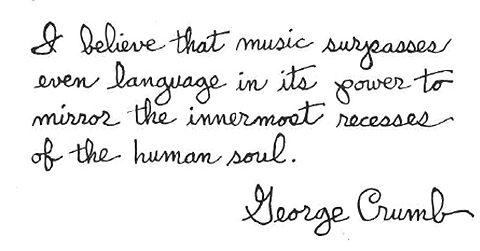 I believe that music surpasses
even language in its power to
mirror the innermost recesses
of the human soul.
George Crumb